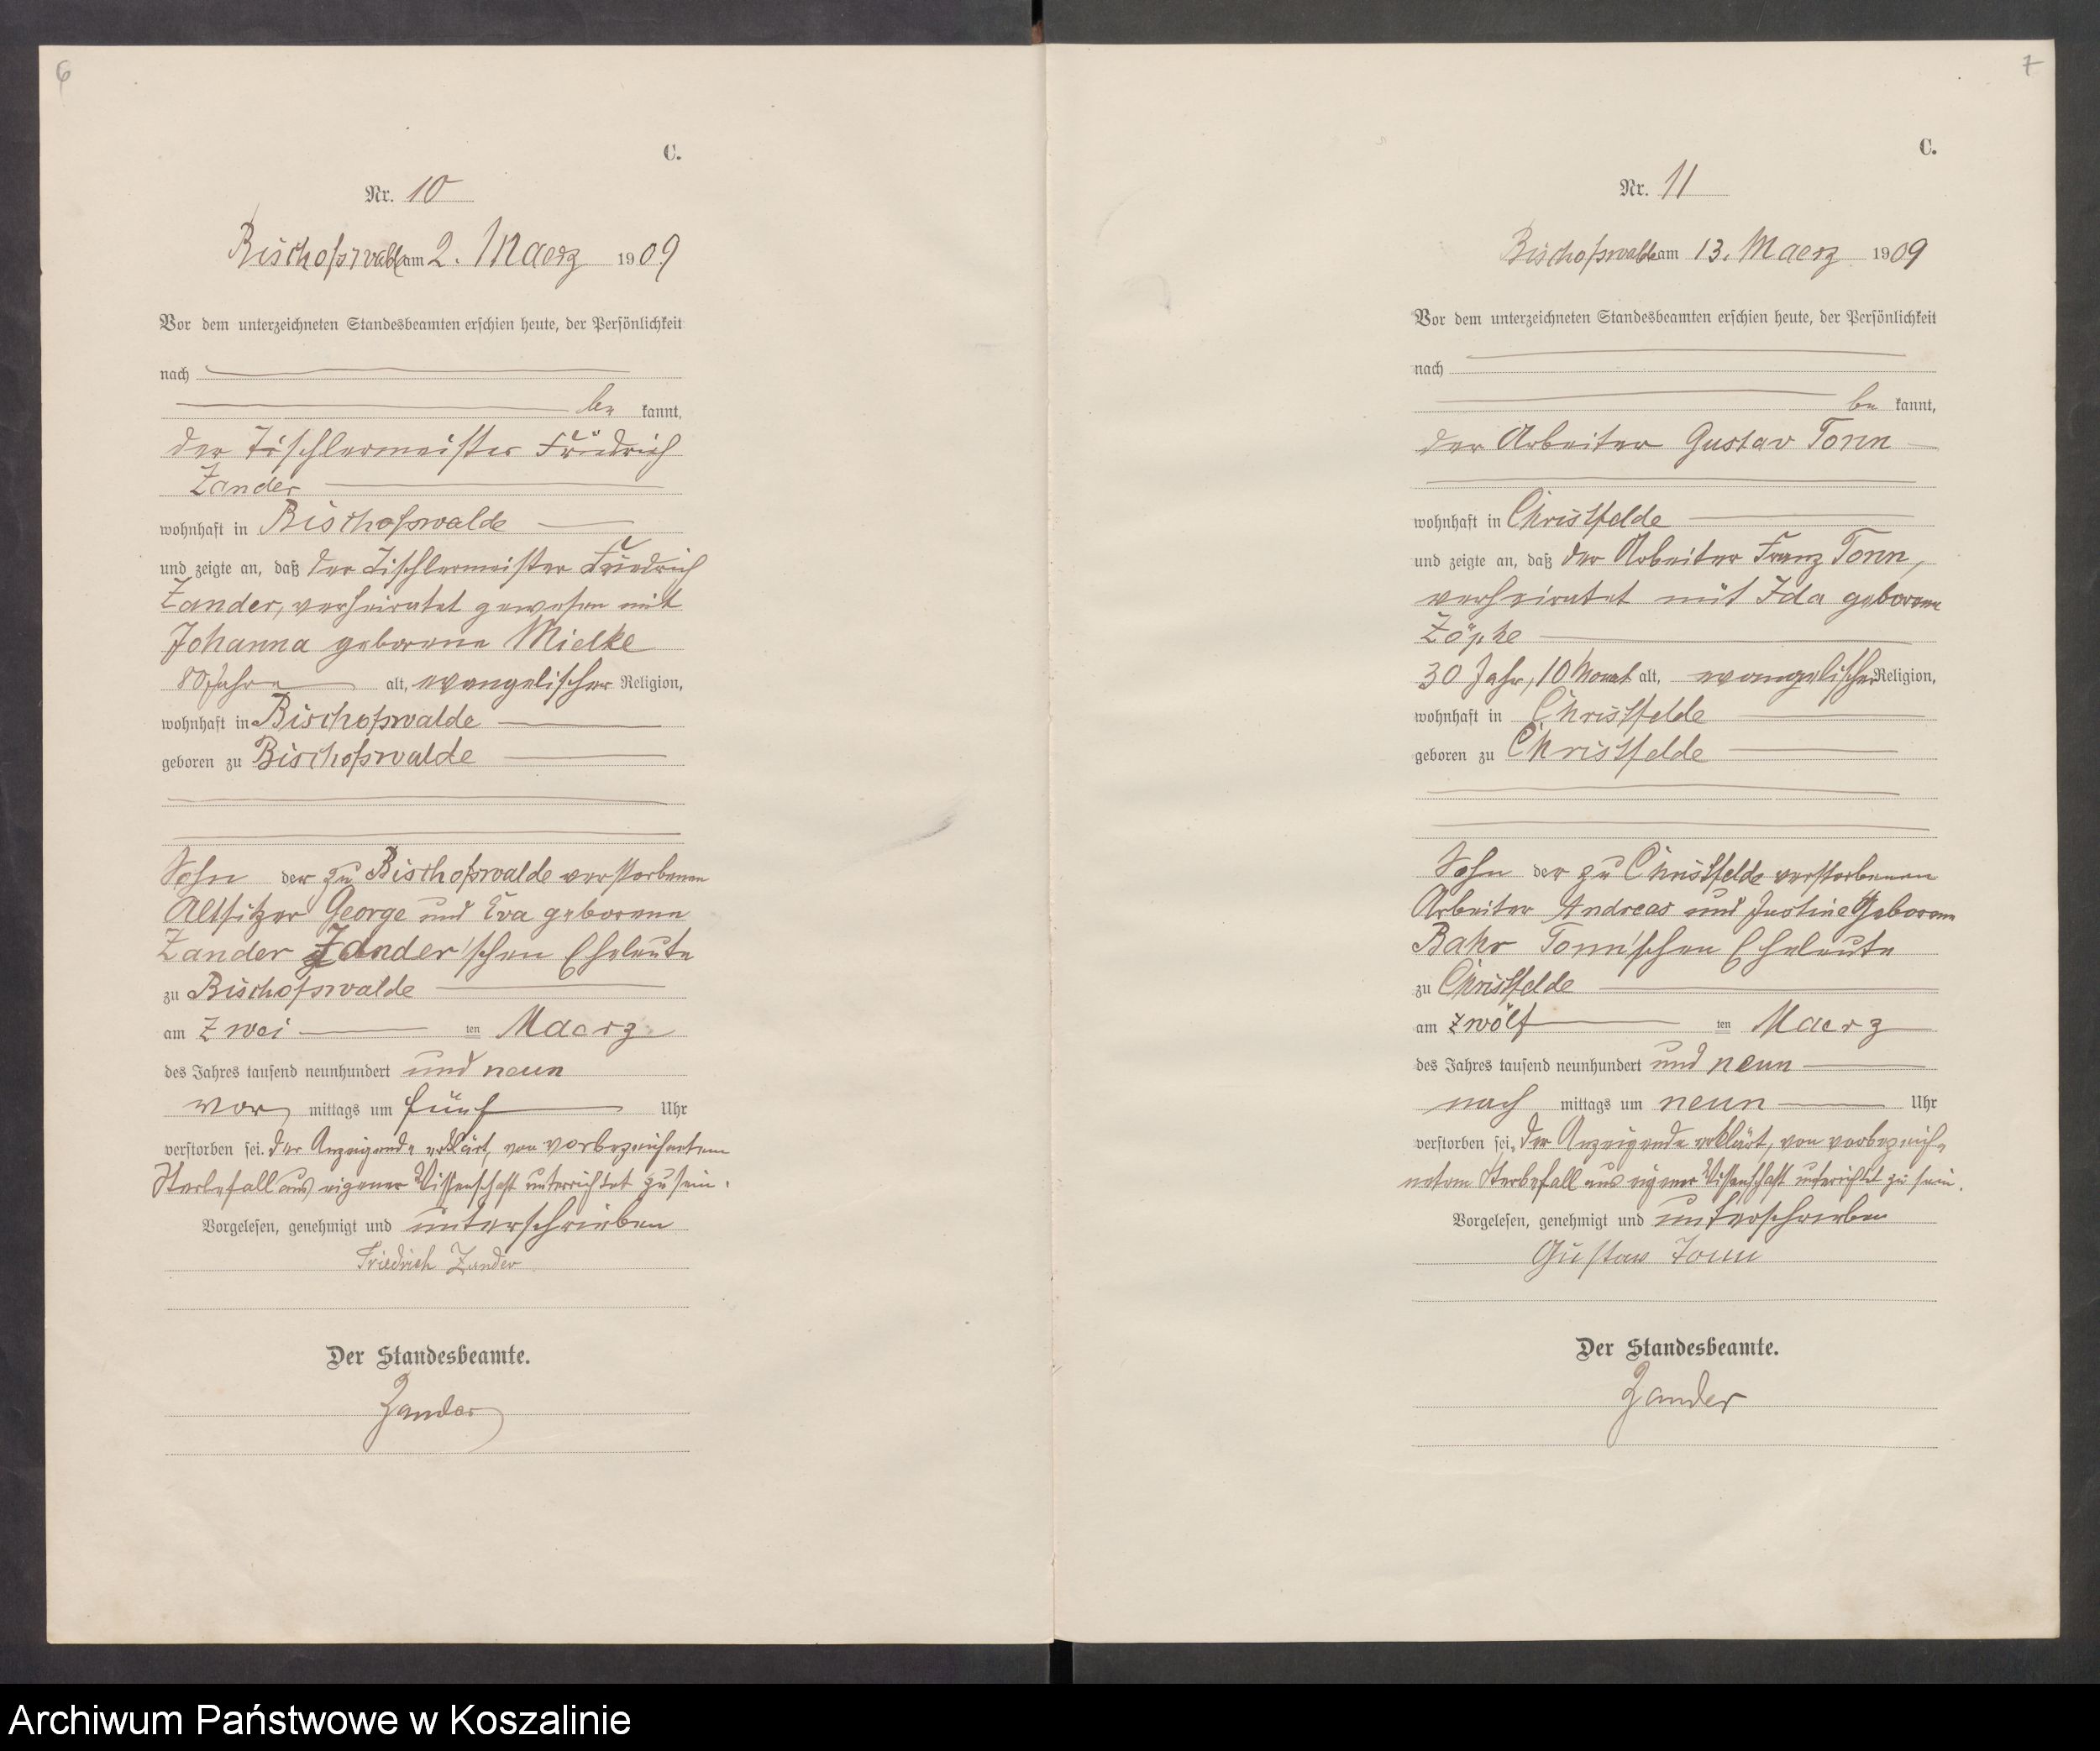 6
C.
Nr. 10
Bischofswalde am 2. Maerz 1909
Vor dem unterzeichneten Standesbeamten erschien heute, der Persönlichkeit
nach
be kannt,
der Tischlermeister Friedrich
Zander
wohnhaft in Bischofswalde
und zeigte an, daß der Tischlermeister Friedrich
Zander, verheiratet gewesen mit
Johanna geborene Mielke
80 Jahre alt, evangelischer Religion,
wohnhaft in Bischofswalde
geboren zu Bischofswalde
Sohn der zu Bischofswalde verstorbenen
Altsitzer George und Eva geborene
Zander Zander'schen Eheleute
zu Bischofswalde
am zwei ten Maerz
des Jahres tausend neunhundert und neun
vor mittags um fünf Uhr
verstorben sei. Der Anzeigende erklärt, von vorbezeichnetem
Sterbefall aus eigener Wissenschaft unterrichtet zu sein.
Vorgelesen, genehmigt und unterschrieben
Friedrich Zander
Der Standesbeamte.
Zander
7
C.
Nr. 11
Bischofswalde am 13. Maerz 1909
Vor dem unterzeichneten Standesbeamten erschien heute, der Persönlichkeit
nach
be kannt,
der Arbeiter Gustav Tonn
wohnhaft in Christfelde
und zeigte an, daß der Arbeiter Franz Tonn,
verheiratet mit Ida geborene
Zöpke
30 Jahr, 10 Monat alt, evangelischer Religion,
wohnhaft in Christfelde
geboren zu Christfelde
Sohn der zu Christfelde verstorbenen
Arbeiter Andreas und Justine geborene
Bahr Tonn'schen Eheleute
zu Christfelde
am zwölf ten Maerz
des Jahres tausend neunhundert und neun
nach mittags um neun Uhr
verstorben sei. Der Anzeigende erklärt, von vorbezeich-
netem Sterbefall aus eigener Wissenschaft unterrichtet zu sein.
Vorgelesen, genehmigt und unterschrieben
Gustav Tonn
Der Standesbeamte.
Zander
Archiwum Państwowe w Koszalinie